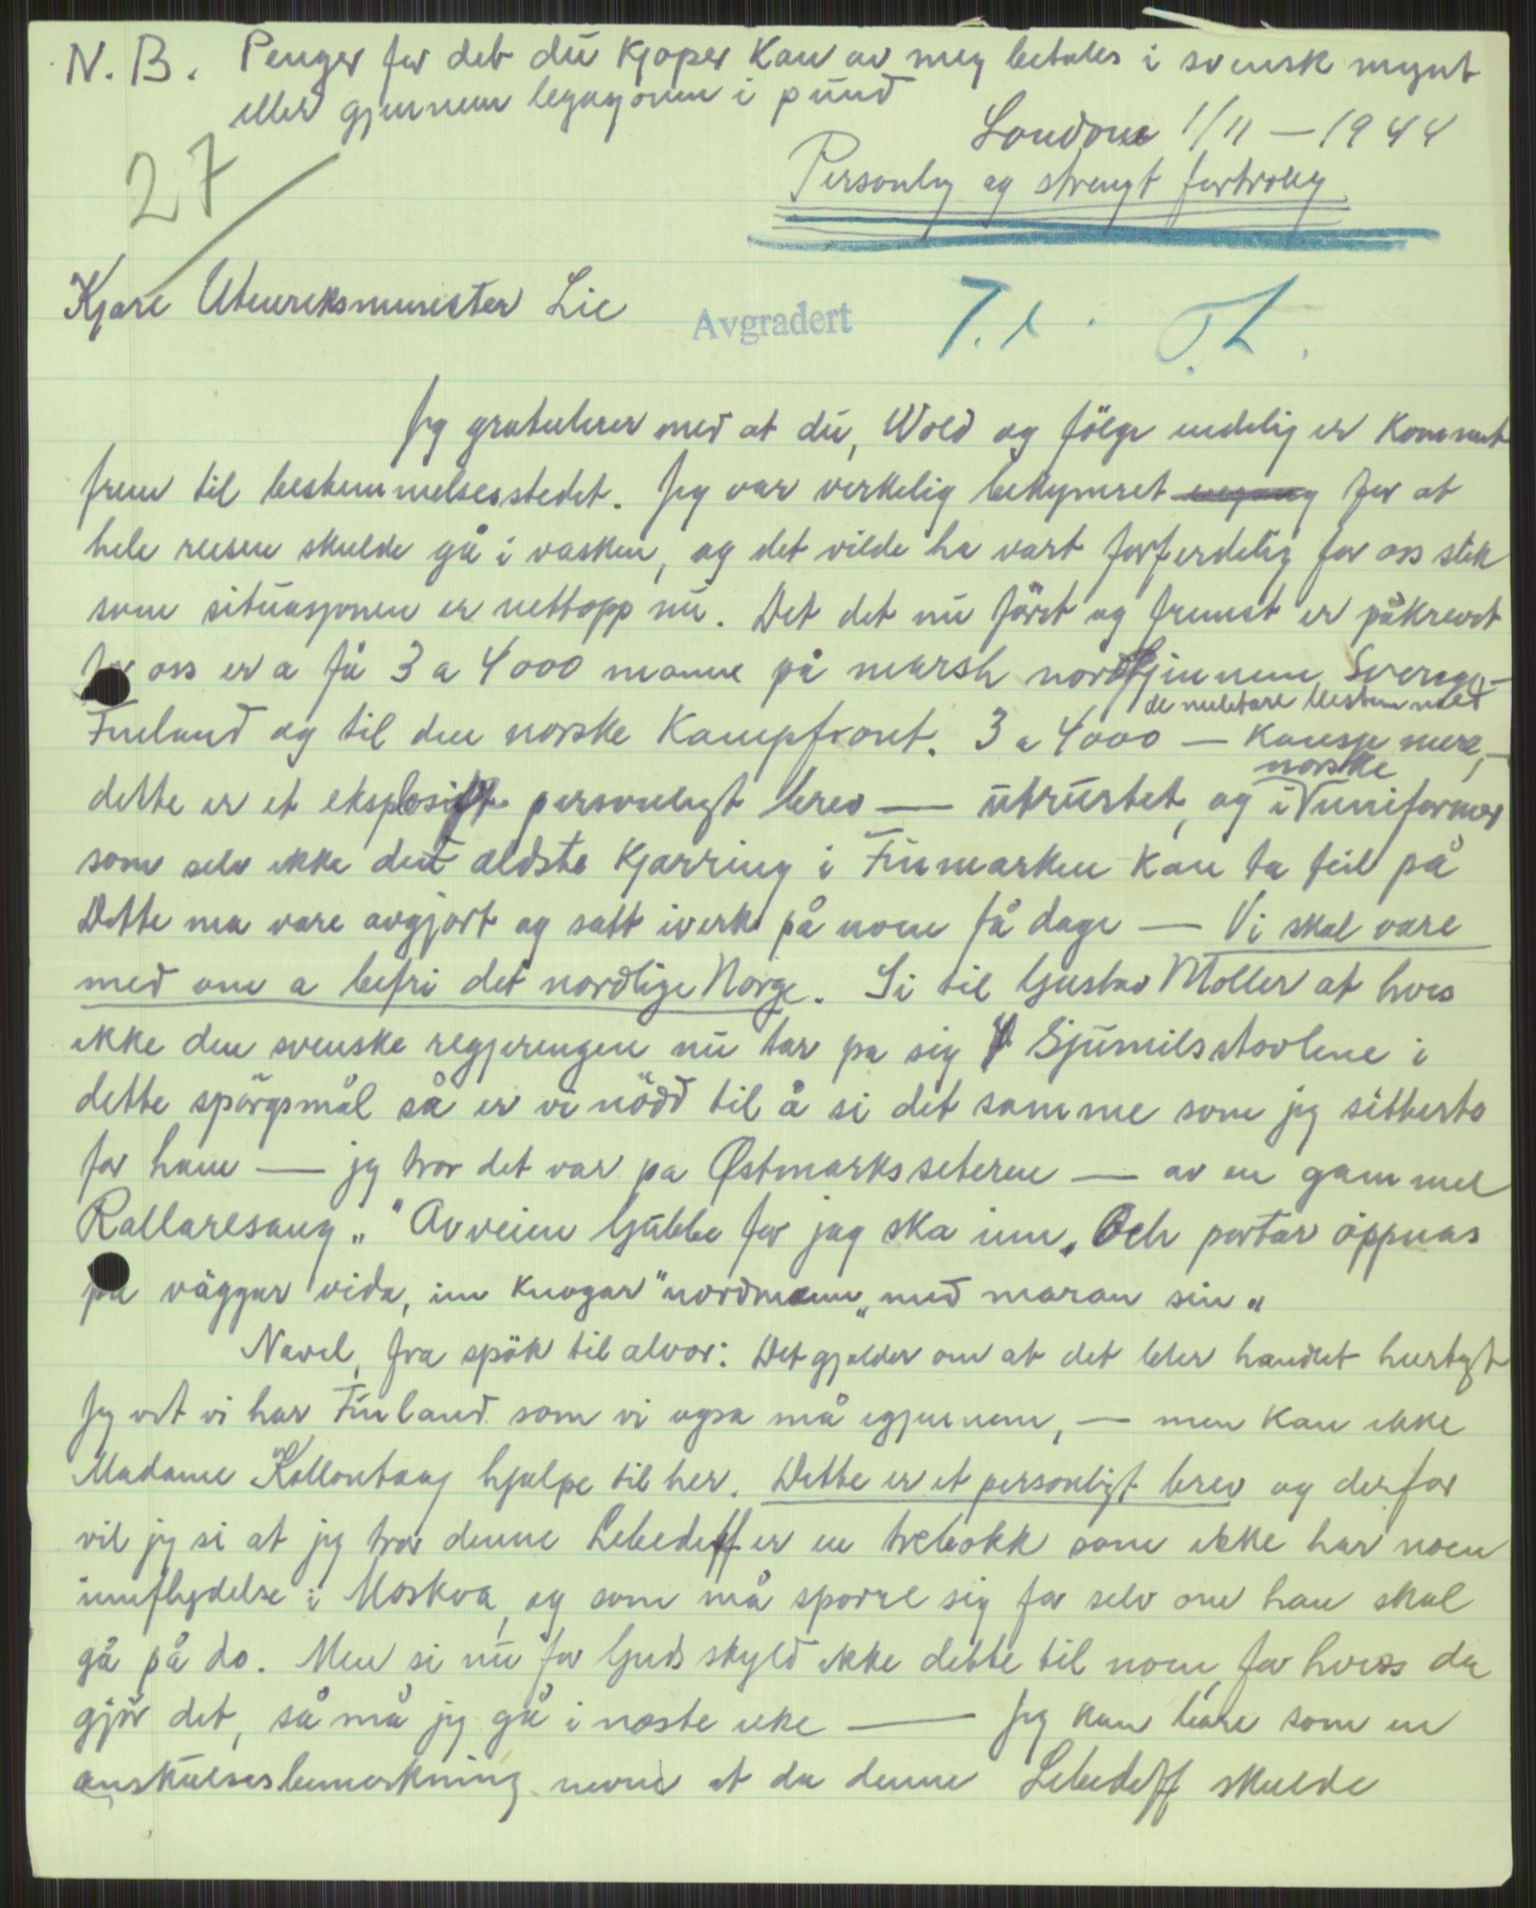 N.B. Penger for det du kjøper kan av meg betales i svensk mynt
eller gjennem legasjonen i pund
London 1/11 – 1944
Personlig og strengt fortrolig
27
Kjære Utenriksminister Lie
Avgradert
T.L.
Jeg gratulerer med at du, Wold og følge endelig er kommet
frem til bestemmelsesstedet. Jeg var verkelig bekymret for at
hele reisen skulde gå i vasken, og det vilde ha vært forferdelig for oss slik
som situasjonen er nettopp nu. Det det nu først og fremst er påkrevet
for oss er a få 3 a 4000 mann på marsh nord gjennem Sverige –
Finland og til den norske Kampfront. 3 a 4000 – kansje mere, –
de militære bestemmer
dette er et eksplosift personligt brev — utrustet, og i norske uniformer
som selv ikke den ældste kjærring i Finmarken kan ta feil på
Dette ma være avgjort og satt iverk på noen få dage — Vi skal være
med om a befri det nordlige Norge. Si til Gustav Møller at hvis
ikke den svenske regjeringen nu tar pa sig Sjumilsstøvlene i
dette spørgsmål så er vi nödd til å si det samme som jeg sitterte
for ham — jeg tror det var pa Østmarkssæteren — av en gammel
Rallaresang „"Av veien Gubbe for jag ska inn. Och portar öppnas
på väggar vida, inn knogar "nordmann„ med maran sin„
Navel, fra spök til alvor: Det gjelder om at det blir handlet hurtigt
Jeg vet vi har Finland som vi ogsa må igjennem, — men kan ikke
Madame Kollontaay hjælpe til her. Dette er et personligt brev og derfor
vil jeg si at jeg tror denne Lebedeff er en trebokk som ikke har noen
innflydelse i Moskva, og som må sporre sig for selv om han skal
gå på do. Men si nu for Guds skyld ikke dette til noen, for hviss du
gjör det, så må jeg gå i næste uke — Jeg kan bare som en
anskuelsesbemerkning nevne at da denne Lebedeff skulde